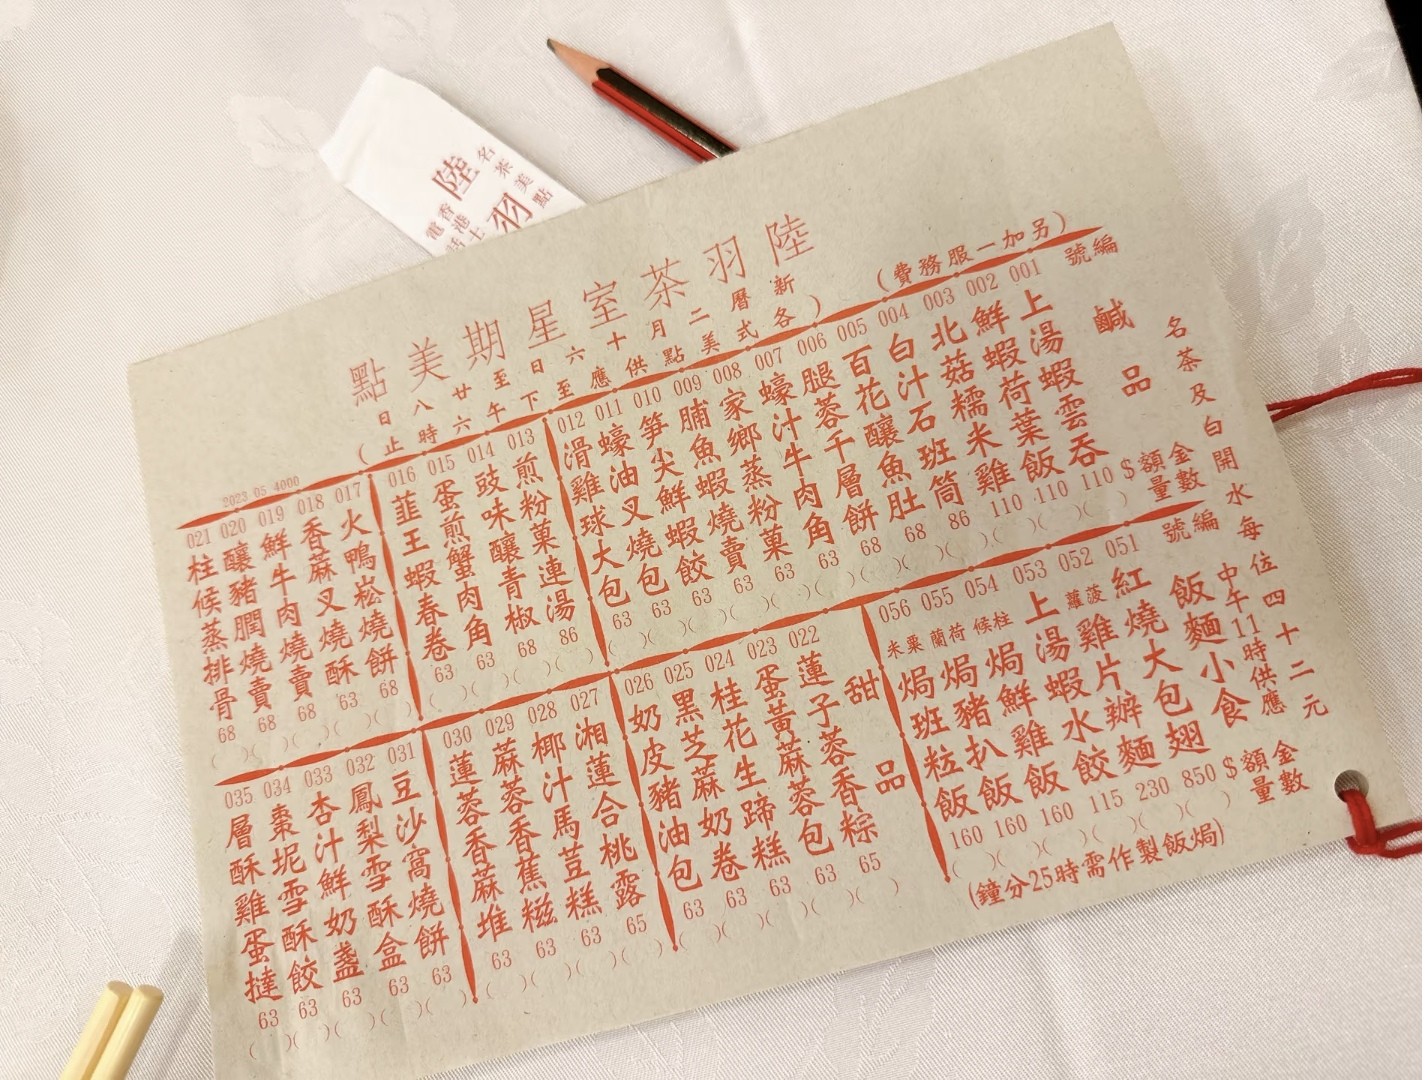 名茶美點
陸羽
香港士
電話
陸羽茶室星期美點
新曆二月十六日至廿八日
(各式美點供應至下午六時止)
(另加一服務費)
2023 05 4000
名茶及白開水每位四十二元
編號
鹹品
金額 $
數量
001 上湯蝦雲吞 110 ( )
002 鮮蝦荷葉飯 110 ( )
003 北菇糯米雞 110 ( )
004 白汁石班筒 86 ( )
005 百花釀魚肚 68 ( )
006 腿蓉千層餅 68 ( )
007 蠔汁牛肉角 63 ( )
008 家鄉蒸粉菓 63 ( )
009 脯魚蝦燒賣 63 ( )
010 笋尖鮮蝦餃 63 ( )
011 蠔油叉燒包 63 ( )
012 滑雞球大包 63 ( )
013 煎粉菓連湯 86 ( )
014 豉味釀青椒 68 ( )
015 蛋煎蟹肉角 63 ( )
016 韮王蝦春卷 63 ( )
017 火鴨崧燒餅 68 ( )
018 香蔴叉燒酥 63 ( )
019 鮮牛肉燒賣 68 ( )
020 釀豬膶燒賣 68 ( )
021 柱候蒸排骨 68 ( )
編號
飯麵小食
中午11時供應
金額 $
數量
051 紅燒大包翅 850 ( )
052 菠蘿雞片辦麵 230 ( )
053 上湯蝦水餃 115 ( )
054 柱候焗鮮雞飯 160 ( )
055 荷蘭焗豬扒飯 160 ( )
056 粟米焗班粒飯 160 ( )
(焗飯製作需時25分鐘)
甜品
022 蓮子蓉香粽 65 ( )
023 蛋黃蔴蓉包 63 ( )
024 桂花生蹄糕 63 ( )
025 黑芝蔴奶卷 63 ( )
026 奶皮豬油包 63 ( )
027 湘蓮合桃露 65 ( )
028 椰汁馬荳糕 63 ( )
029 蔴蓉香蕉糍 63 ( )
030 蓮蓉香蔴堆 63 ( )
031 豆沙窩燒餅 63 ( )
032 鳳梨雪酥盒 63 ( )
033 杏汁鮮奶盞 63 ( )
034 棗坭雪酥餃 63 ( )
035 層酥雞蛋撻 63 ( )